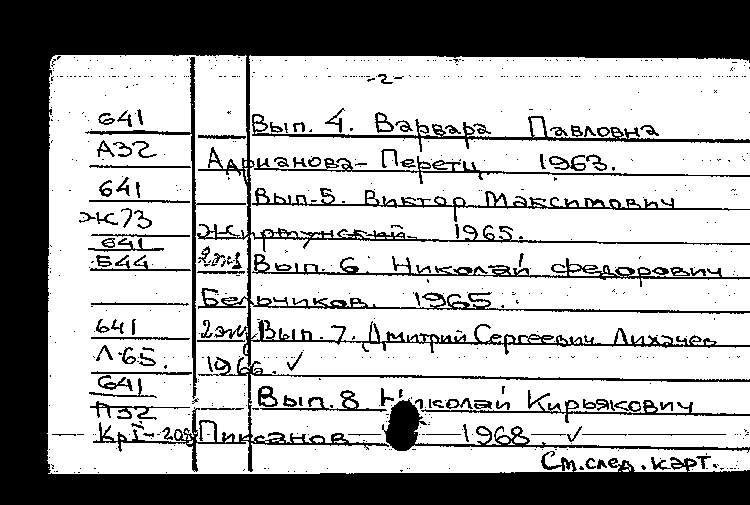 -2-
641 Вып. 4. Варвара Павловна
А32 Адрианова-Перетц 1963.
641 Вып. 5. Виктор Максимович
Ж73 Жирмунский 1965.
641
Б44 2экз Вып. 6. Николай Федорович
Бельчиков. 1965.
641 2экз Вып. 7. Дмитрий Сергеевич Лихачев
Л65. 1966. ✓
641 Вып. 8 Николай Кирьякович
П32
КрI-208 Пиксанов 1968. ✓
См. след. карт.